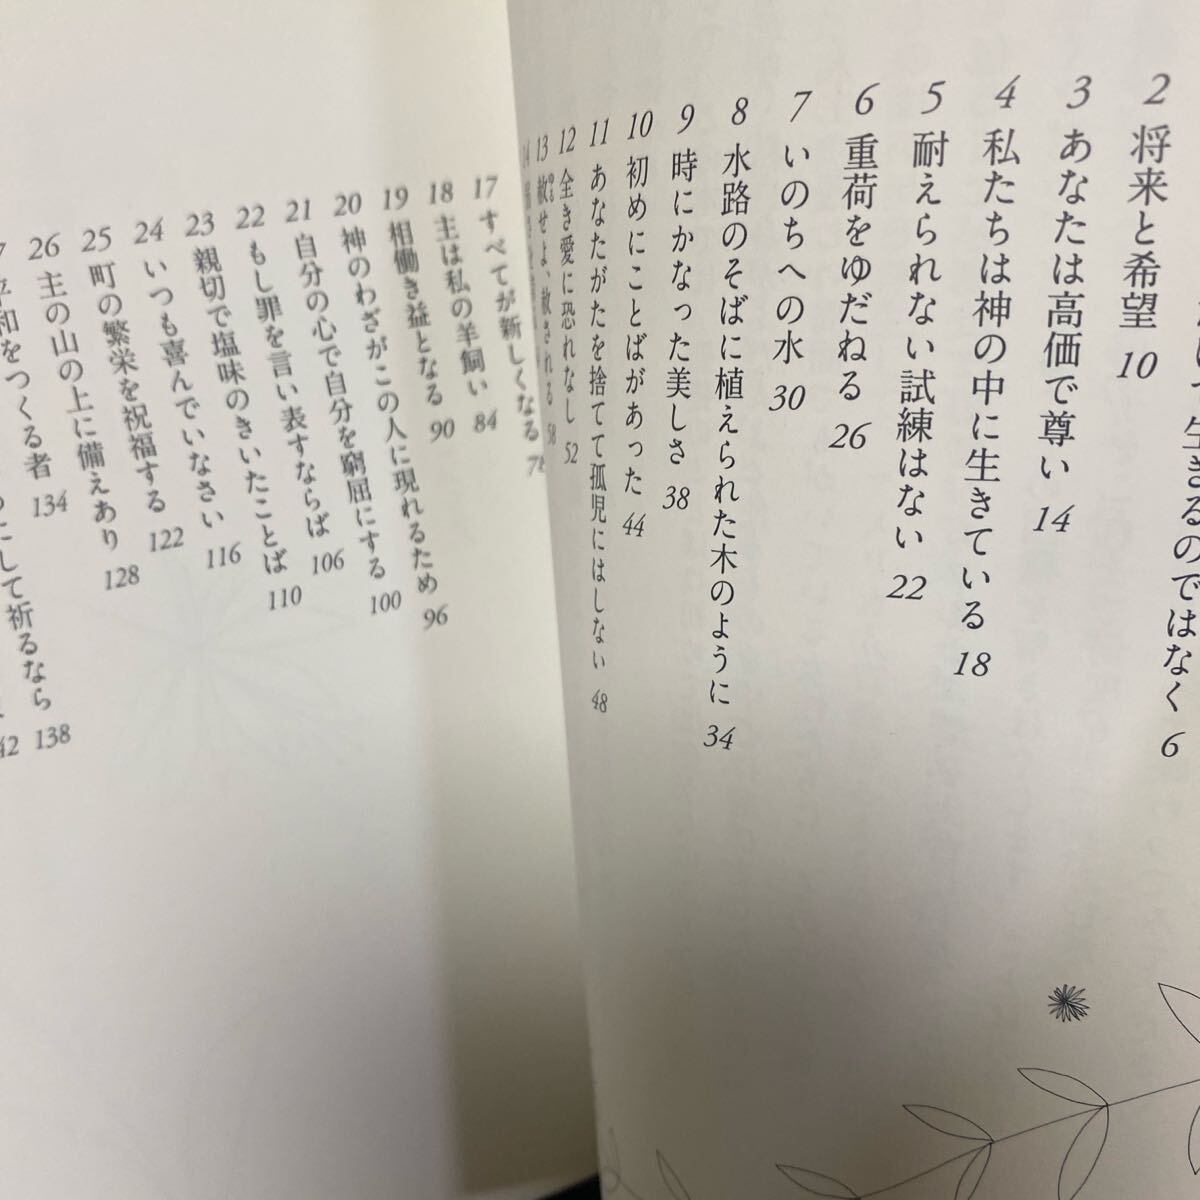 生きるのではなく 6
2 将来と希望 10
3 あなたは高価で尊い 14
4 私たちは神の中に生きている 18
5 耐えられない試練はない 22
6 重荷をゆだねる 26
7 いのちへの水 30
8 水路のそばに植えられた木のように 34
9 時にかなった美しさ 38
10 初めにことばがあった 44
11 あなたがたを捨てて孤児にはしない 48
12 全き愛に恐れなし 52
13 赦せよ、赦される 58
14
17 すべてが新しくなる
18 主は私の羊飼い 84
19 相働き益となる 90
20 神のわざがこの人に現れるため 96
21 自分の心で自分を窮屈にする 100
22 もし罪を言い表すならば 106
23 親切で塩味のきいたことば 110
24 いつも喜んでいなさい 116
25 町の繁栄を祝福する 122
26 主の山の上に備えあり 128
平和をつくる者 134
にして祈るなら 138